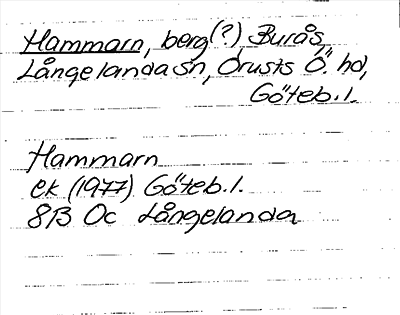 Hammarn, berg (?) Burås,
Långelanda sn, Orusts Ö. hd,
Göteb. l.
Hammarn
ek (1977) Göteb. l.
8B Oc Långelanda